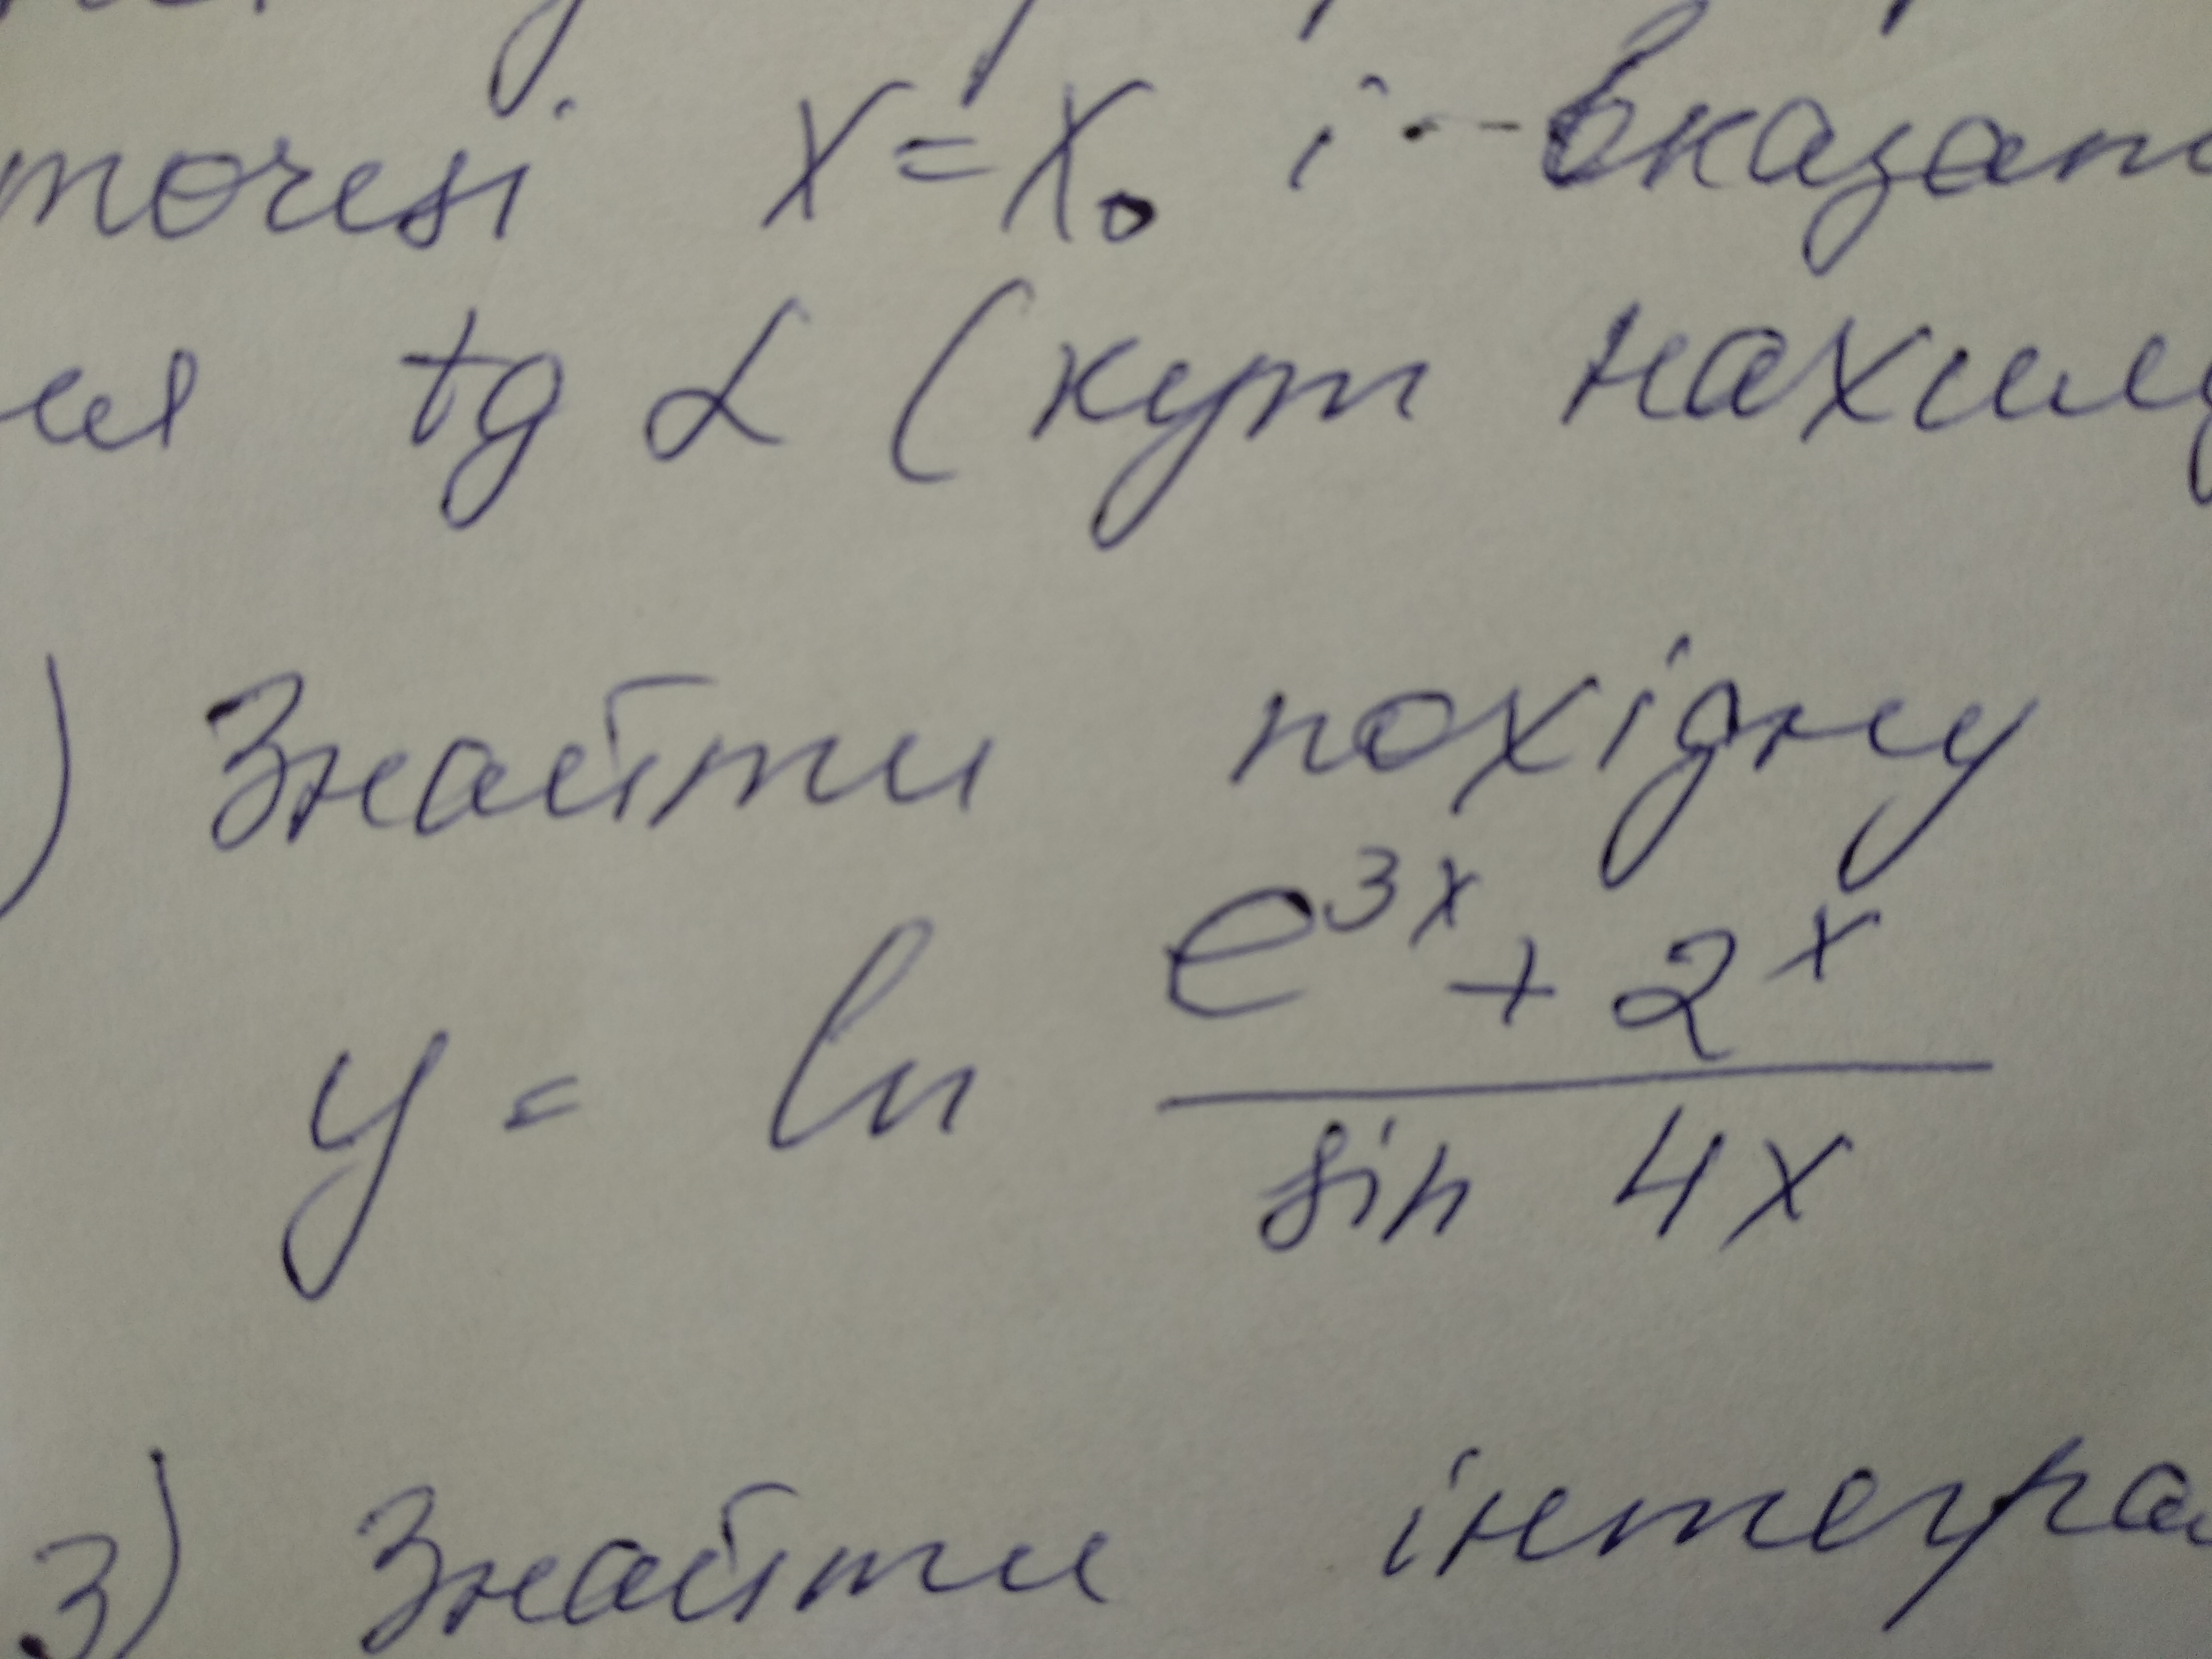 точці x = x₀ і вказати
tg α (кут нахилу
) Знайти похідну
y = ln (e^{3x} + 2^x) / (sin 4x)
3) Знайти інтеграл